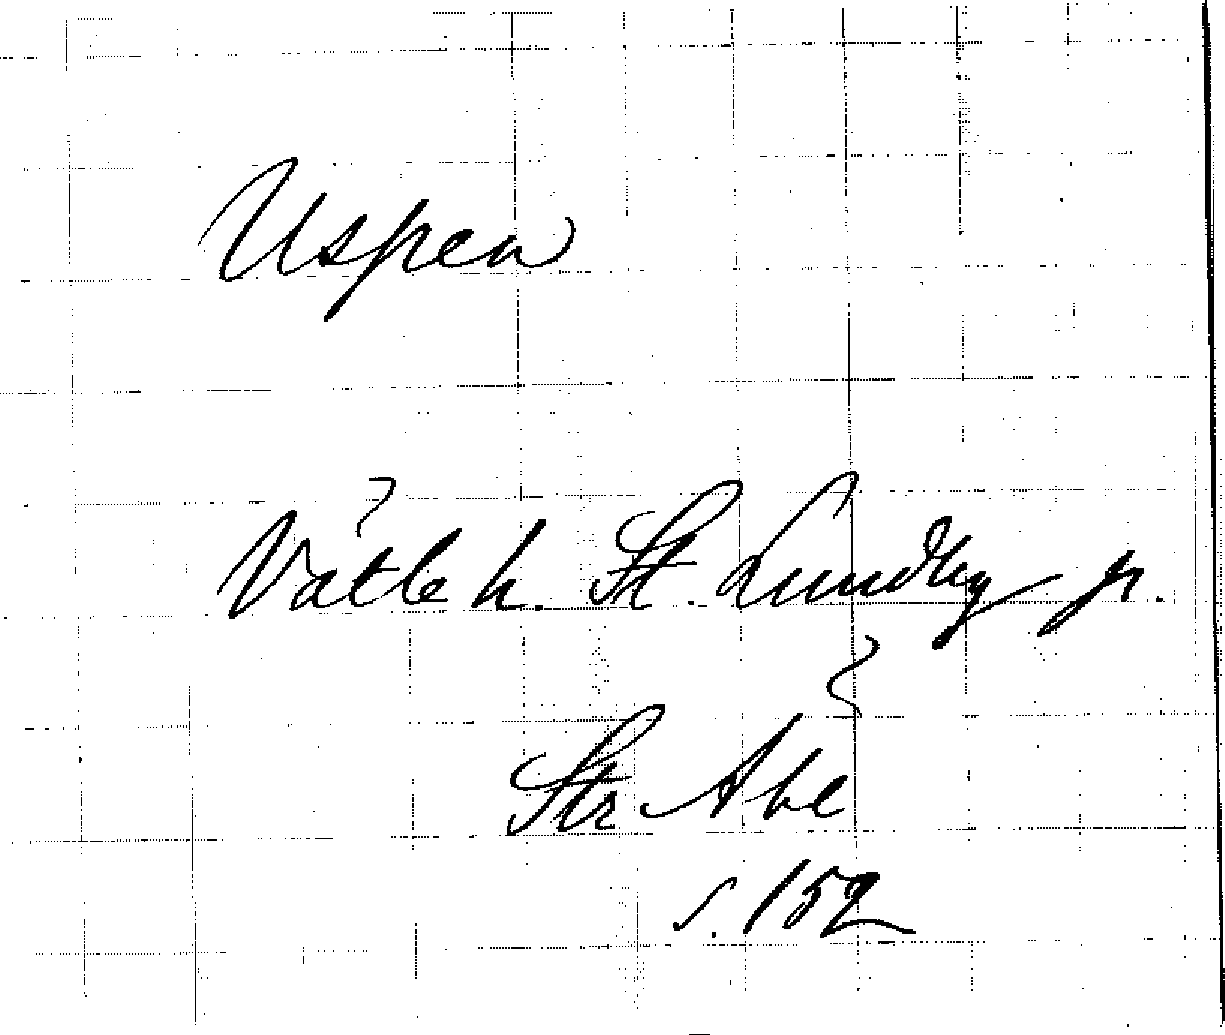 Uspen
Vátle h. St. Lundby jr.
Str Abe
s. 152